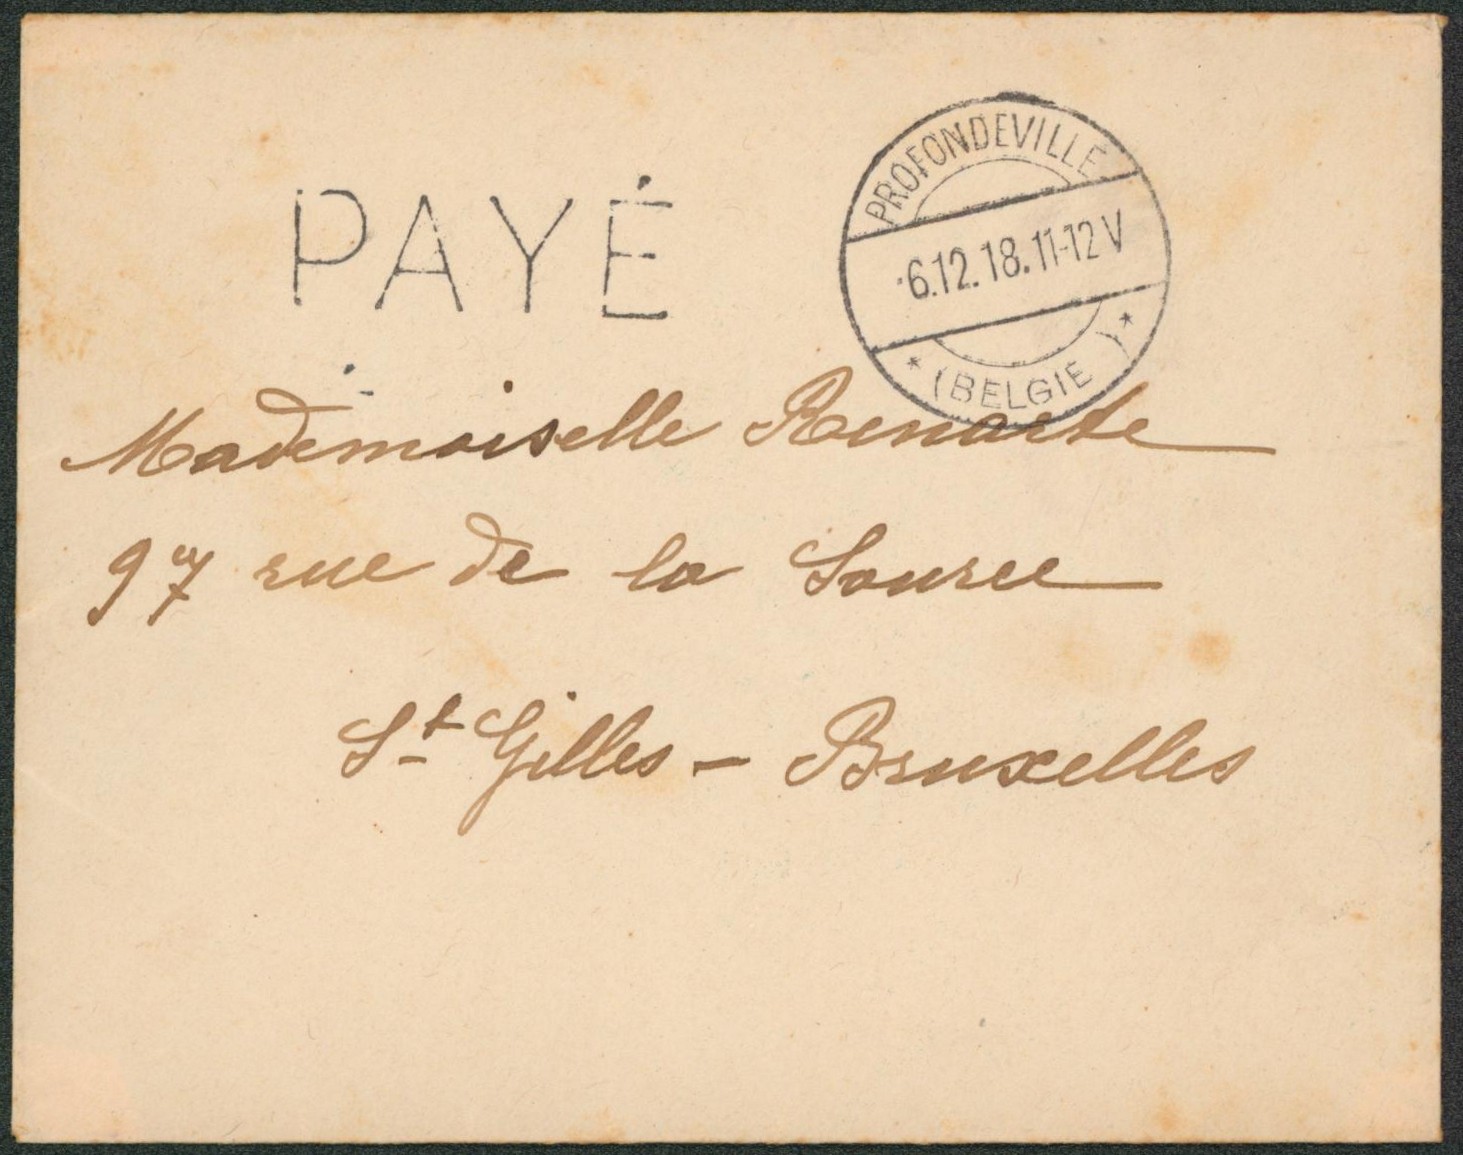 PAYÉ
PROFONDEVILLE
6.12.18.11-12 V
* (BELGIE) *
Mademoiselle Renarte
97 rue de la Source
St Gilles - Bruxelles